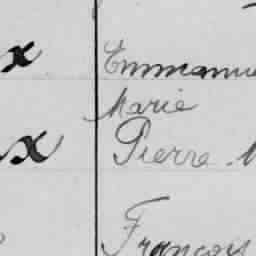 x Emmanue
Marie
x Pierre
François